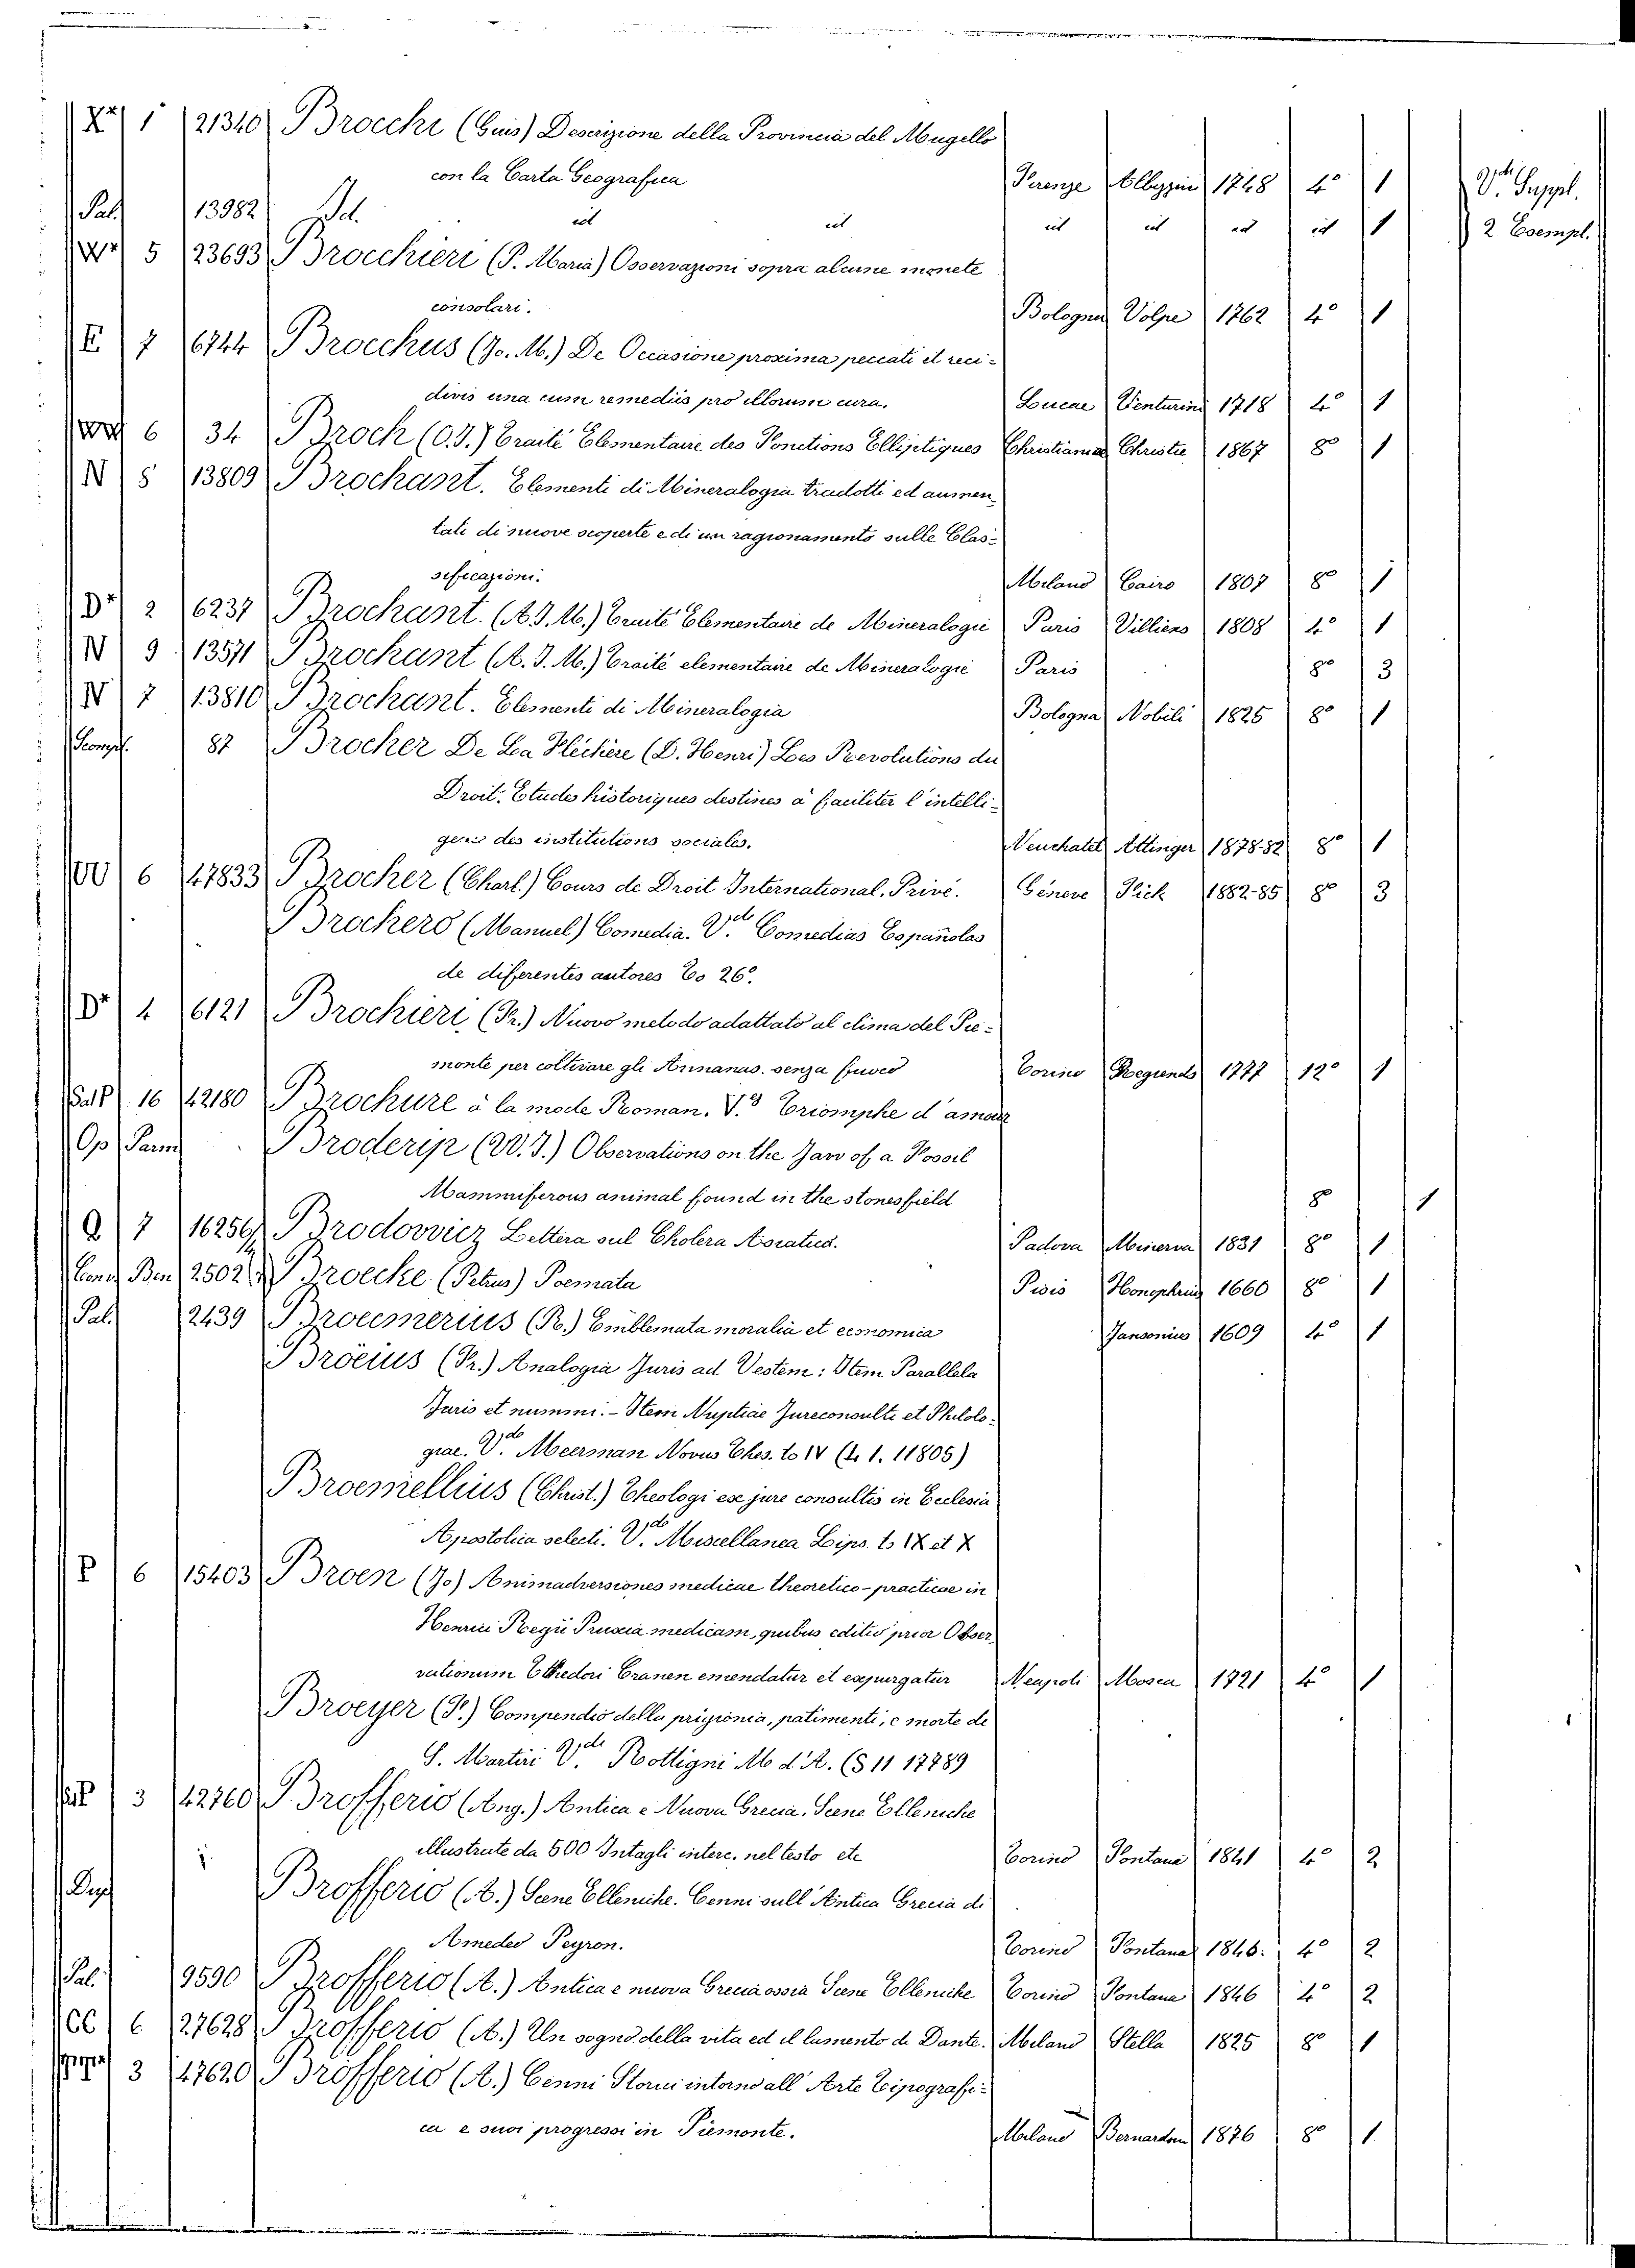 X 1 21340 Brocchi (Gius) Descrizione della Provincia del Mugello
con la Carta Geografica Firenze Albizzini 1748 4° 1 Vd. Suppl.
Pal. 13982 Id. id id id id id id 1 2 Esempl.
5 23693 Brocchieri (P. Maria) Osservazioni sopra alcune monete
consolari. Bologna Volpe 1762 4° 1
E 7 6744 Brocchus (Jo. M.) De Occasione proxima peccati et reci-
divis una cum remediis pro illorum cura. Lucae Venturini 1718 4° 1
6 34 Broch (O.J.) Traité Elementaire des Fonctions Elliptiques Christiania Christie 1867 8° 1
N 8 13809 Brochant. Elementi di Mineralogia tradotti ed aumen-
tati di nuove scoperte e di un ragionamento sulle Clas-
sificazioni. Milano Cairo 1807 8° 1
D 2 6237 Brochant. (A.J.M.) Traité Elementaire de Mineralogie Paris Villiers 1808 4° 1
N 9 13571 Brochant (A.J.M.) Traité elementaire de Mineralogie Paris 8° 3
N 7 13810 Brochant. Elementi di Mineralogia Bologna Nobili 1825 8° 1
87 Brocher De La Fléchère (D. Henri) Les Revolutions du
Droit. Etudes historiques destines à faciliter l'intelli-
gence des institutions sociales. Neuchatel Attinger 1878-82 8° 1
6 47833 Brocher (Charl.) Cours de Droit International Privé. Géneve Pich 1882-85 8° 3
Brochero (Manuel) Comedia. Vde Comedias Españolas
de diferentes autores To 26°.
D 4 6121 Brochieri (Fr.) Nuovo metodo adattato al clima del Pie-
monte per coltivare gli Annanas. senza fuoco Torino Regiend 1777 12° 1
SalP 16 42180 Brochure à la mode Roman. V.d Triomphe d'amour
Op Parm Broderip (W.J.) Observations on the Jaw of a Fossil
Mammiferous animal found in the stonesfield 8 1
Q 7 16256 Brodovvicz Lettera sul Cholera Asiatica. Padova Minerva 1831 8° 1
Ben 2502 Broecke (Petrus) Poemata Pisis Honophrius 1660 8° 1
Pal. 12439 Broecmerius (R.) Emblemata moralia et ecnomica Jansonius 1609 4° 1
Bröeius (Fr.) Analogia Juris ad Vestem: Item Parallela
Juris et nummi. - Item Nuptiae Jureconsulti et Philolo-
giae. Vde Meerman Novus Thes. to IV (4. 1. 11805)
Broemellius (Christ.) Theologi ex jure consultis in Ecclesia
Apostolica selecti. Vde Miscellanea Lips. to IX et X
P 6 15403 Broen (Jo) Animadversiones medicae theoretico-practicae in
Henrici Regii Praxia medicam, quibus editio prior Obser
vationum Theodori Cranen emendatur et expurgatur Neapoli Mosca 1721 4° 1
Broeyer (F.) Compendio della prigionia, patimenti, e morte de
S. Martiri Vde Rottigni M d. A. (S 11 17789
3 42760 Brofferio (Ang.) Antica e Nuova Grecia. Scene Elleniche
illustrate da 500 Intagli interc. nel testo etc Torino Fontana 1841 4° 2
Dup Brofferio (A.) Scene Elleniche. Cenni sull'Antica Grecia di
Amedeo Peyron. Torino Fontana 1846. 4° 2
Pal. 9590 Brofferio (A.) Antica e nuova Grecia ossia Scene Elleniche Torino Fontana 1846 4° 2
CC 6 27628 Brofferio (A.) Un sogno della vita ed il lamento di Dante. Milano Stella 1825 8° 1
3 47620 Brofferio (A.) Cenni Storici intorno all'Arte Tipografi-
ca e suoi progressi in Piemonte. Milano Bernardoni 1876 8° 1